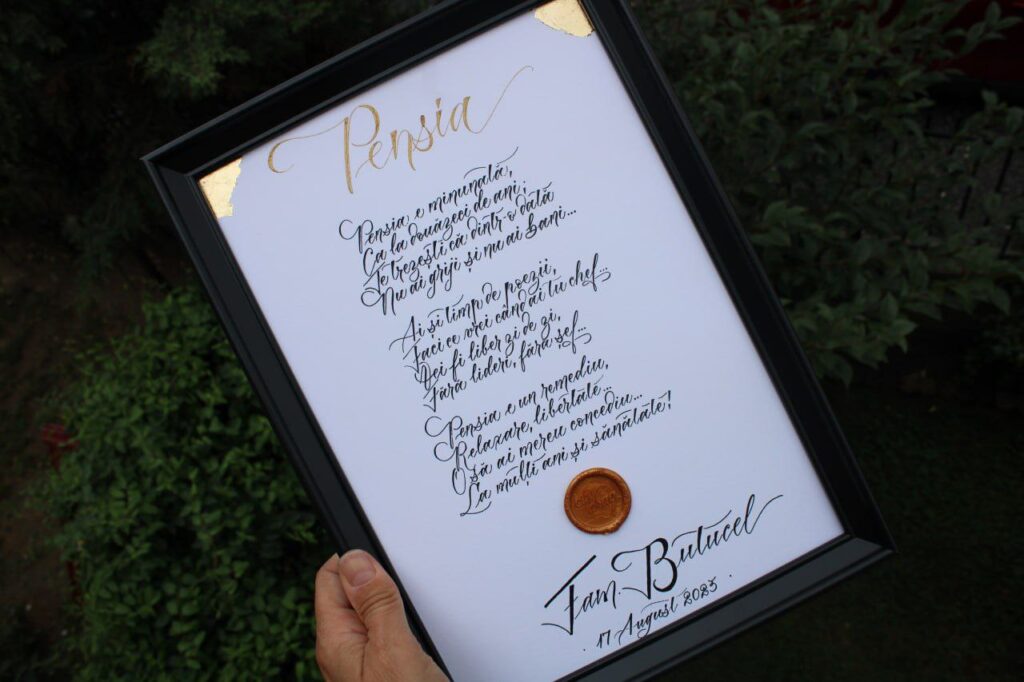 Pensia
Pensia e minunată,
Ca la douăzeci de ani;
Te trezești că dintr-o dată
Nu ai griji și nu ai bani...
Ai și timp de poezii,
Faci ce vrei când ai tu chef...
Vei fi liber zi de zi,
Fără lideri, fără șef...
Pensia e un remediu,
Relaxare, libertate...
O să ai mereu concediu...
La mulți ani și sănătate!
Fam. Butucel
. 17 August 2023 .